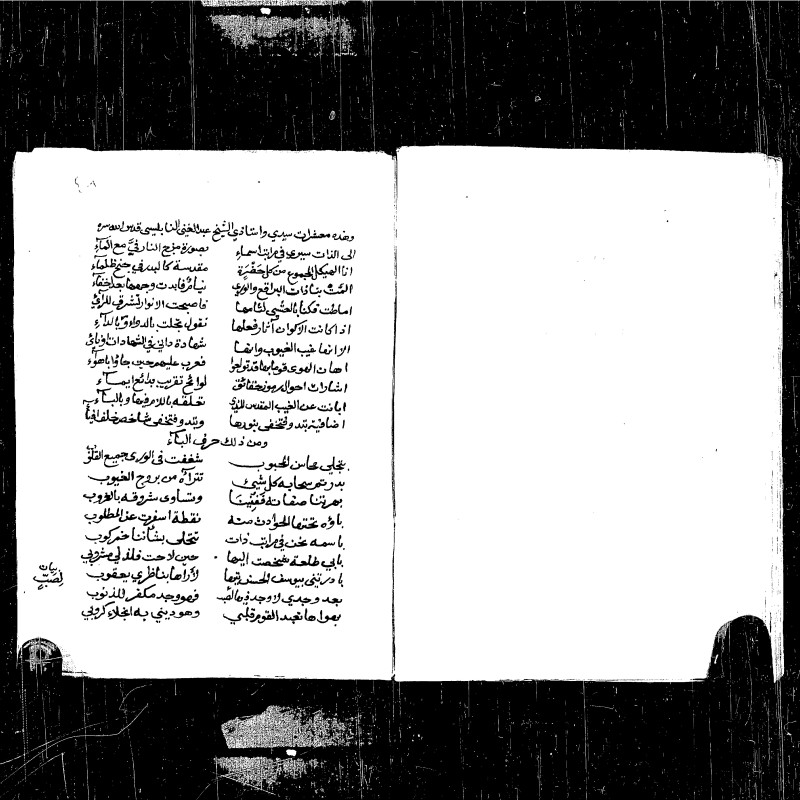 وهذه معشرات سيدي واستاذي الشيخ عبد الغني النابلسي قدس الله سره
الى الذات سيري في مراتب اسماء بصورة مزج النار في مع الماء
انا الهيكل المجموع من كل حضرة مقدسة كالبدر في جنح ظلماء
المت بنا ذات البراقع والورى نيام فابدت وجهها بعد اخفاء
اماطت فكنا بالعشي لثامها فاصبحت الانوار تشرق للرائي
اذا كانت الاكوان آثار فعلها نقول تجلت بالدواء وبالداء
الا انها غيب الغيوب وانها شهادة داني في الشهادات او نائي
اهان الهوى قوما بها قد تولعوا فعرب عليهم حين جاؤا باهواء
اشارات احوال رموز حقائق لوائح تقريب بدائع ايماء
ابانت عن الغيب المقدس للذي تخلقه باللام فيها وبالباء
اضافية تبدو وتخفى بنورها وتبدو فتخفى شاخص خلف افياء
ومن ذلك حرف الباء
بتجلي محاسن المحبوب شغفت في الورى جميع القلوب
بدر تم سحابه كل شيء تتراآه من بروج الغيوب
بهرتنا صفاته ففنينا وتساوى شروقه بالغروب
باؤه تحتها الحوادث منه نقطة اسفرت عن المطلوب
باسمه نحن في مراتب ذات تتجلى بشأننا خمر كوب
بابي طلعة شخصت اليها حين لاحت فلذ لي مشروبي
بادرتني بيوسف الحسن تيها لاراها بناظري يعقوب
بعد وجدي لا وجد فهو وجد مكفر للذنوب
بهواها تعبد القوم قلبي وهو ديني به انجلاء كروبي